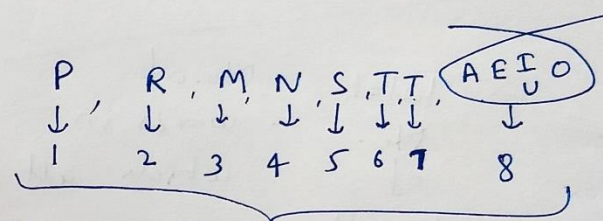 P, R, M, N, S, T, T, A E I O
U
↓ ↓ ↓ ↓ ↓ ↓ ↓ ↓
1 2 3 4 5 6 7 8